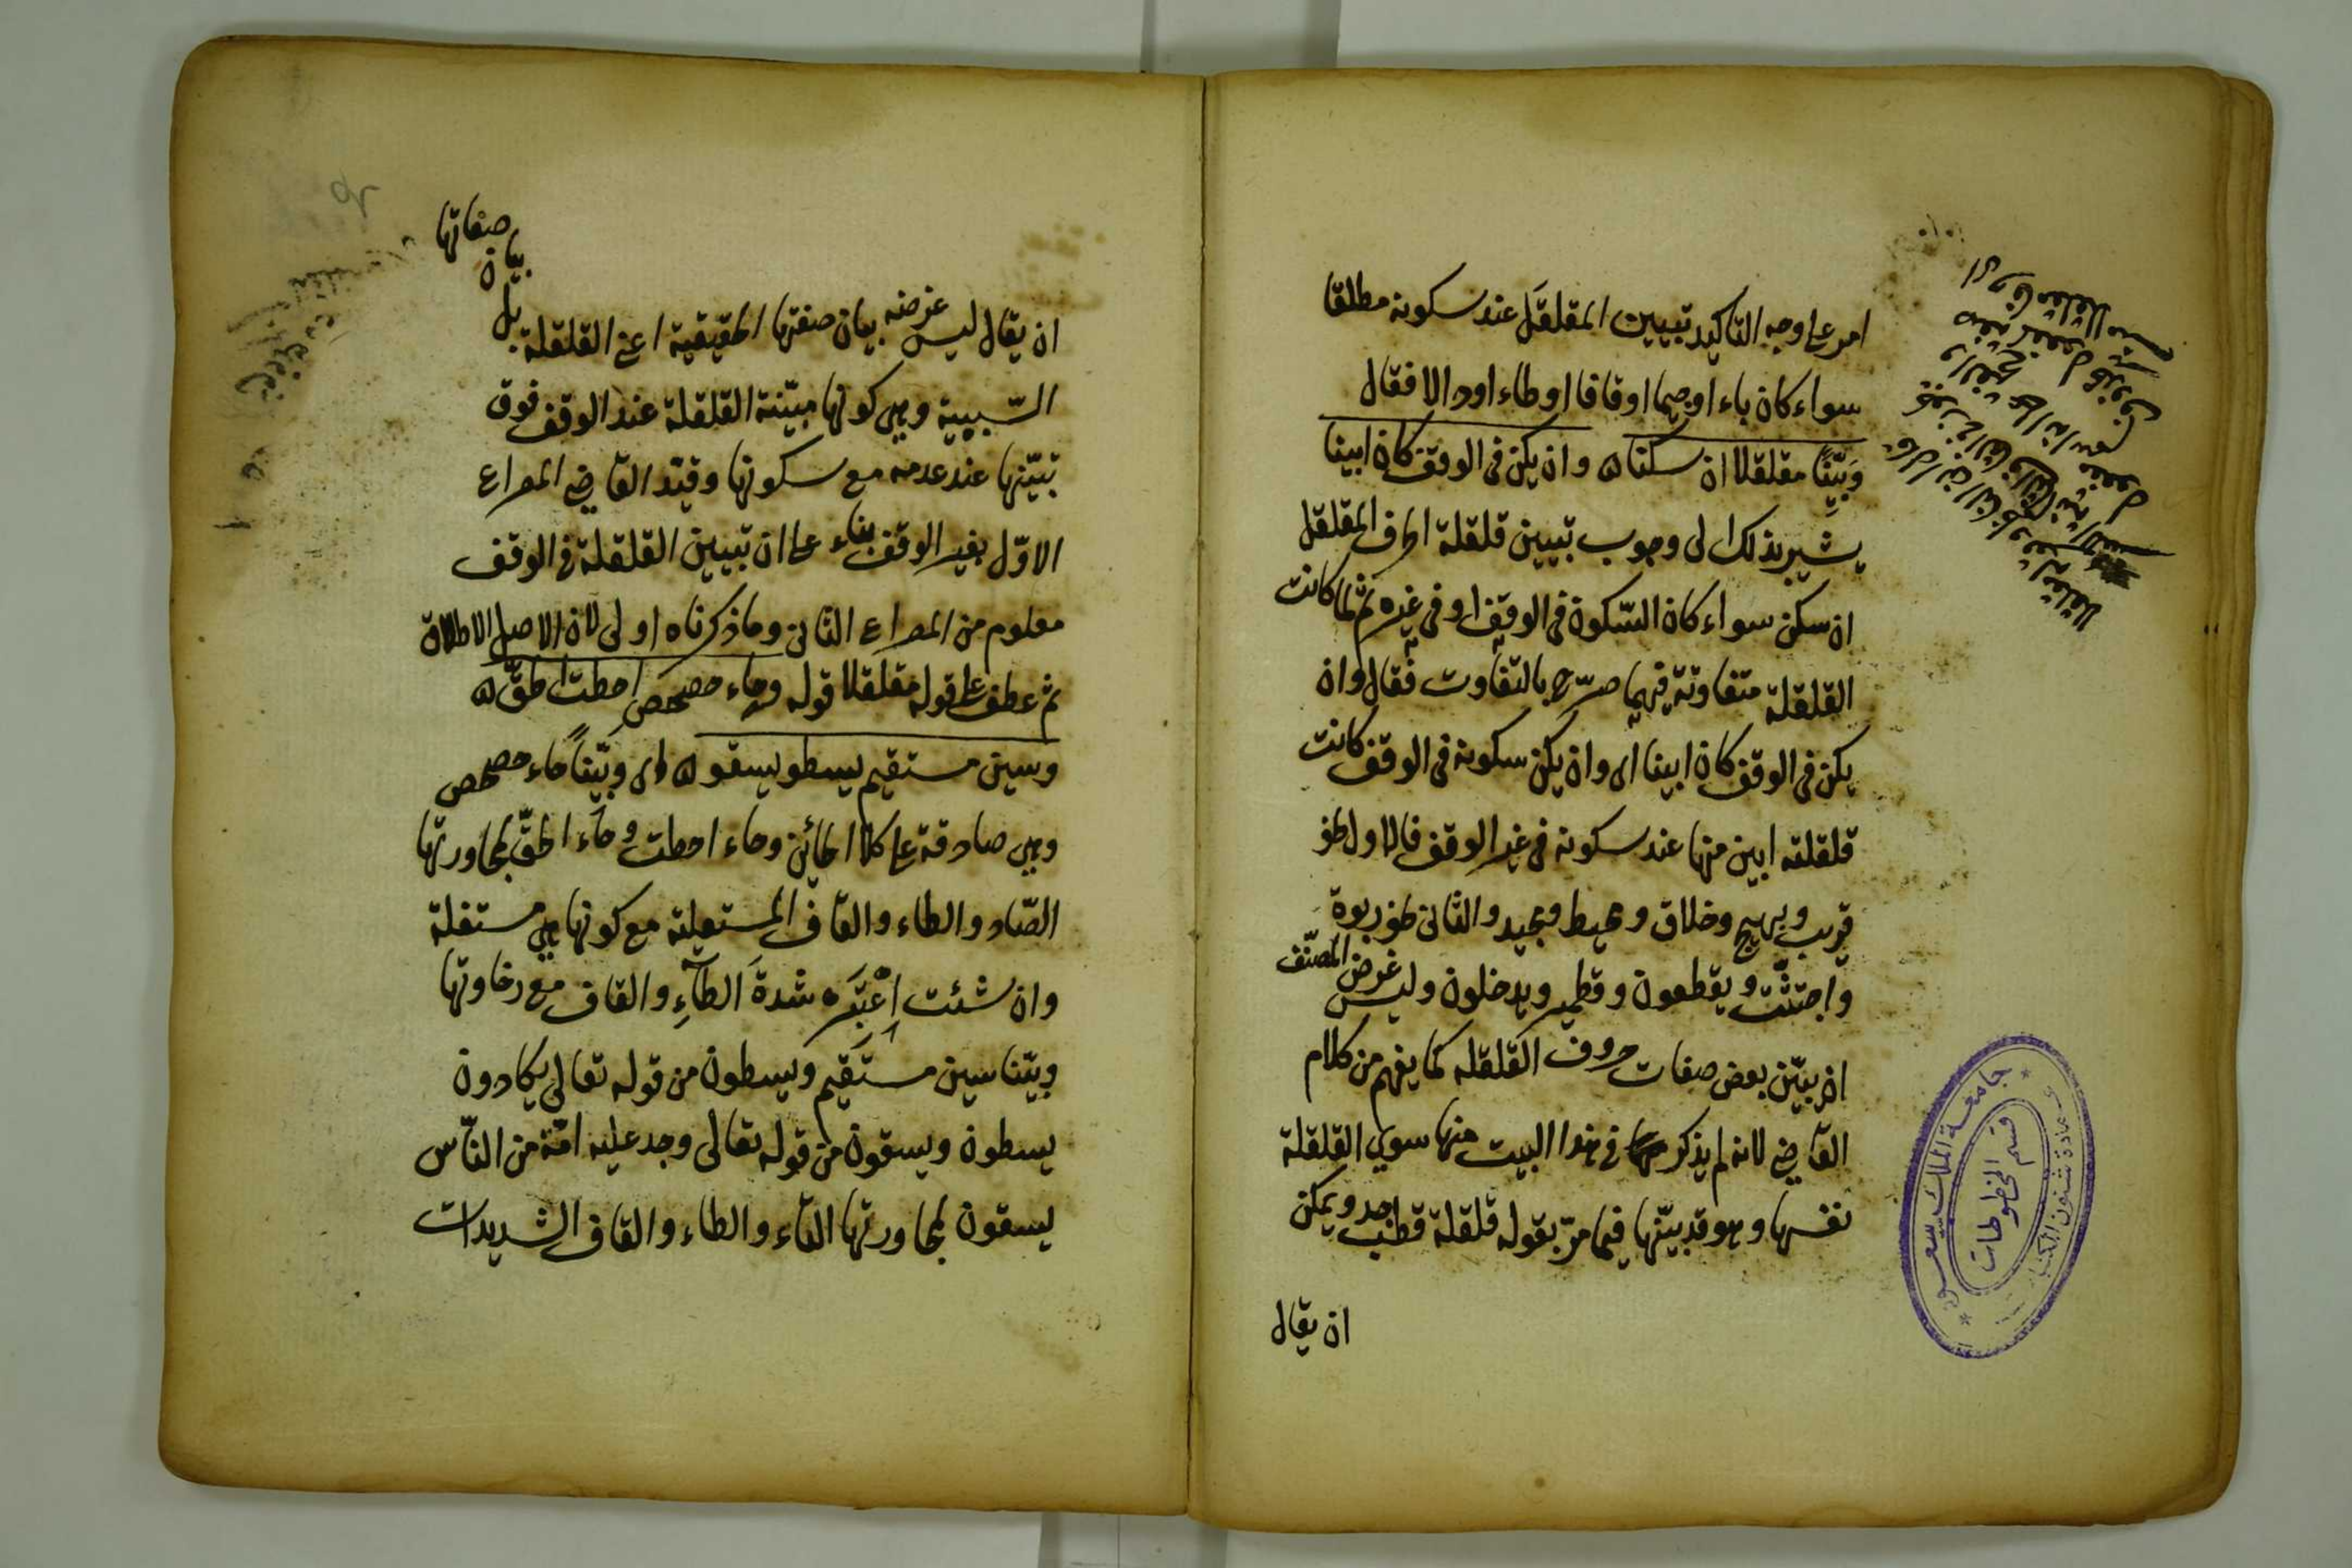 امر على وجه التاكيد تبيين المقلقَل عند سكونه مطلقا
سواء كان باء او جيما او قافا او طاء او دالا فقال
وَبَيِّنًا مقلقلا ان سكنا وان يكن فى الوقف كان ابينا
يشير بذلك الى وجوب تبيين قلقلة الحرف المقلقل
ان سكن سواء كان السّكون فى الوقف او فى غيره ثم لما كانت
القلقلة متفاوتة فيهما صرّح بالتفاوت فقال وان
يكن فى الوقف كان ابينا اى وان يكن سكونه فى الوقف كانت
قلقلته ابين منها عند سكونه فى غير الوقف فالاول نحو
قريب وبهيج وخلاق ومحيط ومجيد والثانى نحو ربوة
واجتثّت ويقطعون وقطمير ويدخلون وليس غرض المصنّف
ان يبيّن بعض صفات حروف القلقله كما يفهم من كلام
القاضى لانه لم يذكر فى هذا البيت منها سوى القلقلة
نفسها وهو قد بيّنها فيما مرّ بقوله قلقلة قطب جد ويمكن
ان يقال
جامعة الملك سعود
عمادة شئون المكتبات
قسم المخطوطات
ان يقال ليس غرضه بيان صفتها الحقيقية اعنى القلقلة بل بيان صفاتها
السّببية وهى كونها مبيّنة القلقلة عند الوقف فوق
تبيّنها عند عدمه مع سكونها وقيّد القاضى المصراع
الاوّل بغير الوقف بناء على ان تبيين القلقلة فى الوقف
معلوم من المصراع الثانى وما ذكرناه اولى لان الاصل الاطلاق
ثم عطف على قوله مقلقلا قوله وحاء حصحص احطت الحقّ
وسين مستقيم يسطو يسقو اى وبيّنًا حاء حصحص
وهى صادقة على كلا الحائين وحاء احطت وحاء الحقّ لمجاورتها
الصّاد والطاء والقاف المستعلية مع كونها هى مستفلة
وان شئت اِعْتَبِرْ شدةَ الطآءِ والقاف مع رخاوتها
وبيّنا سين مستقيم ويسطون من قوله تعالى يكادون
يسطون ويسقون من قوله تعالى وجد عليه امّة من النّاس
يسقون لمجاورتها التّاء والطاء والقاف الشديدات